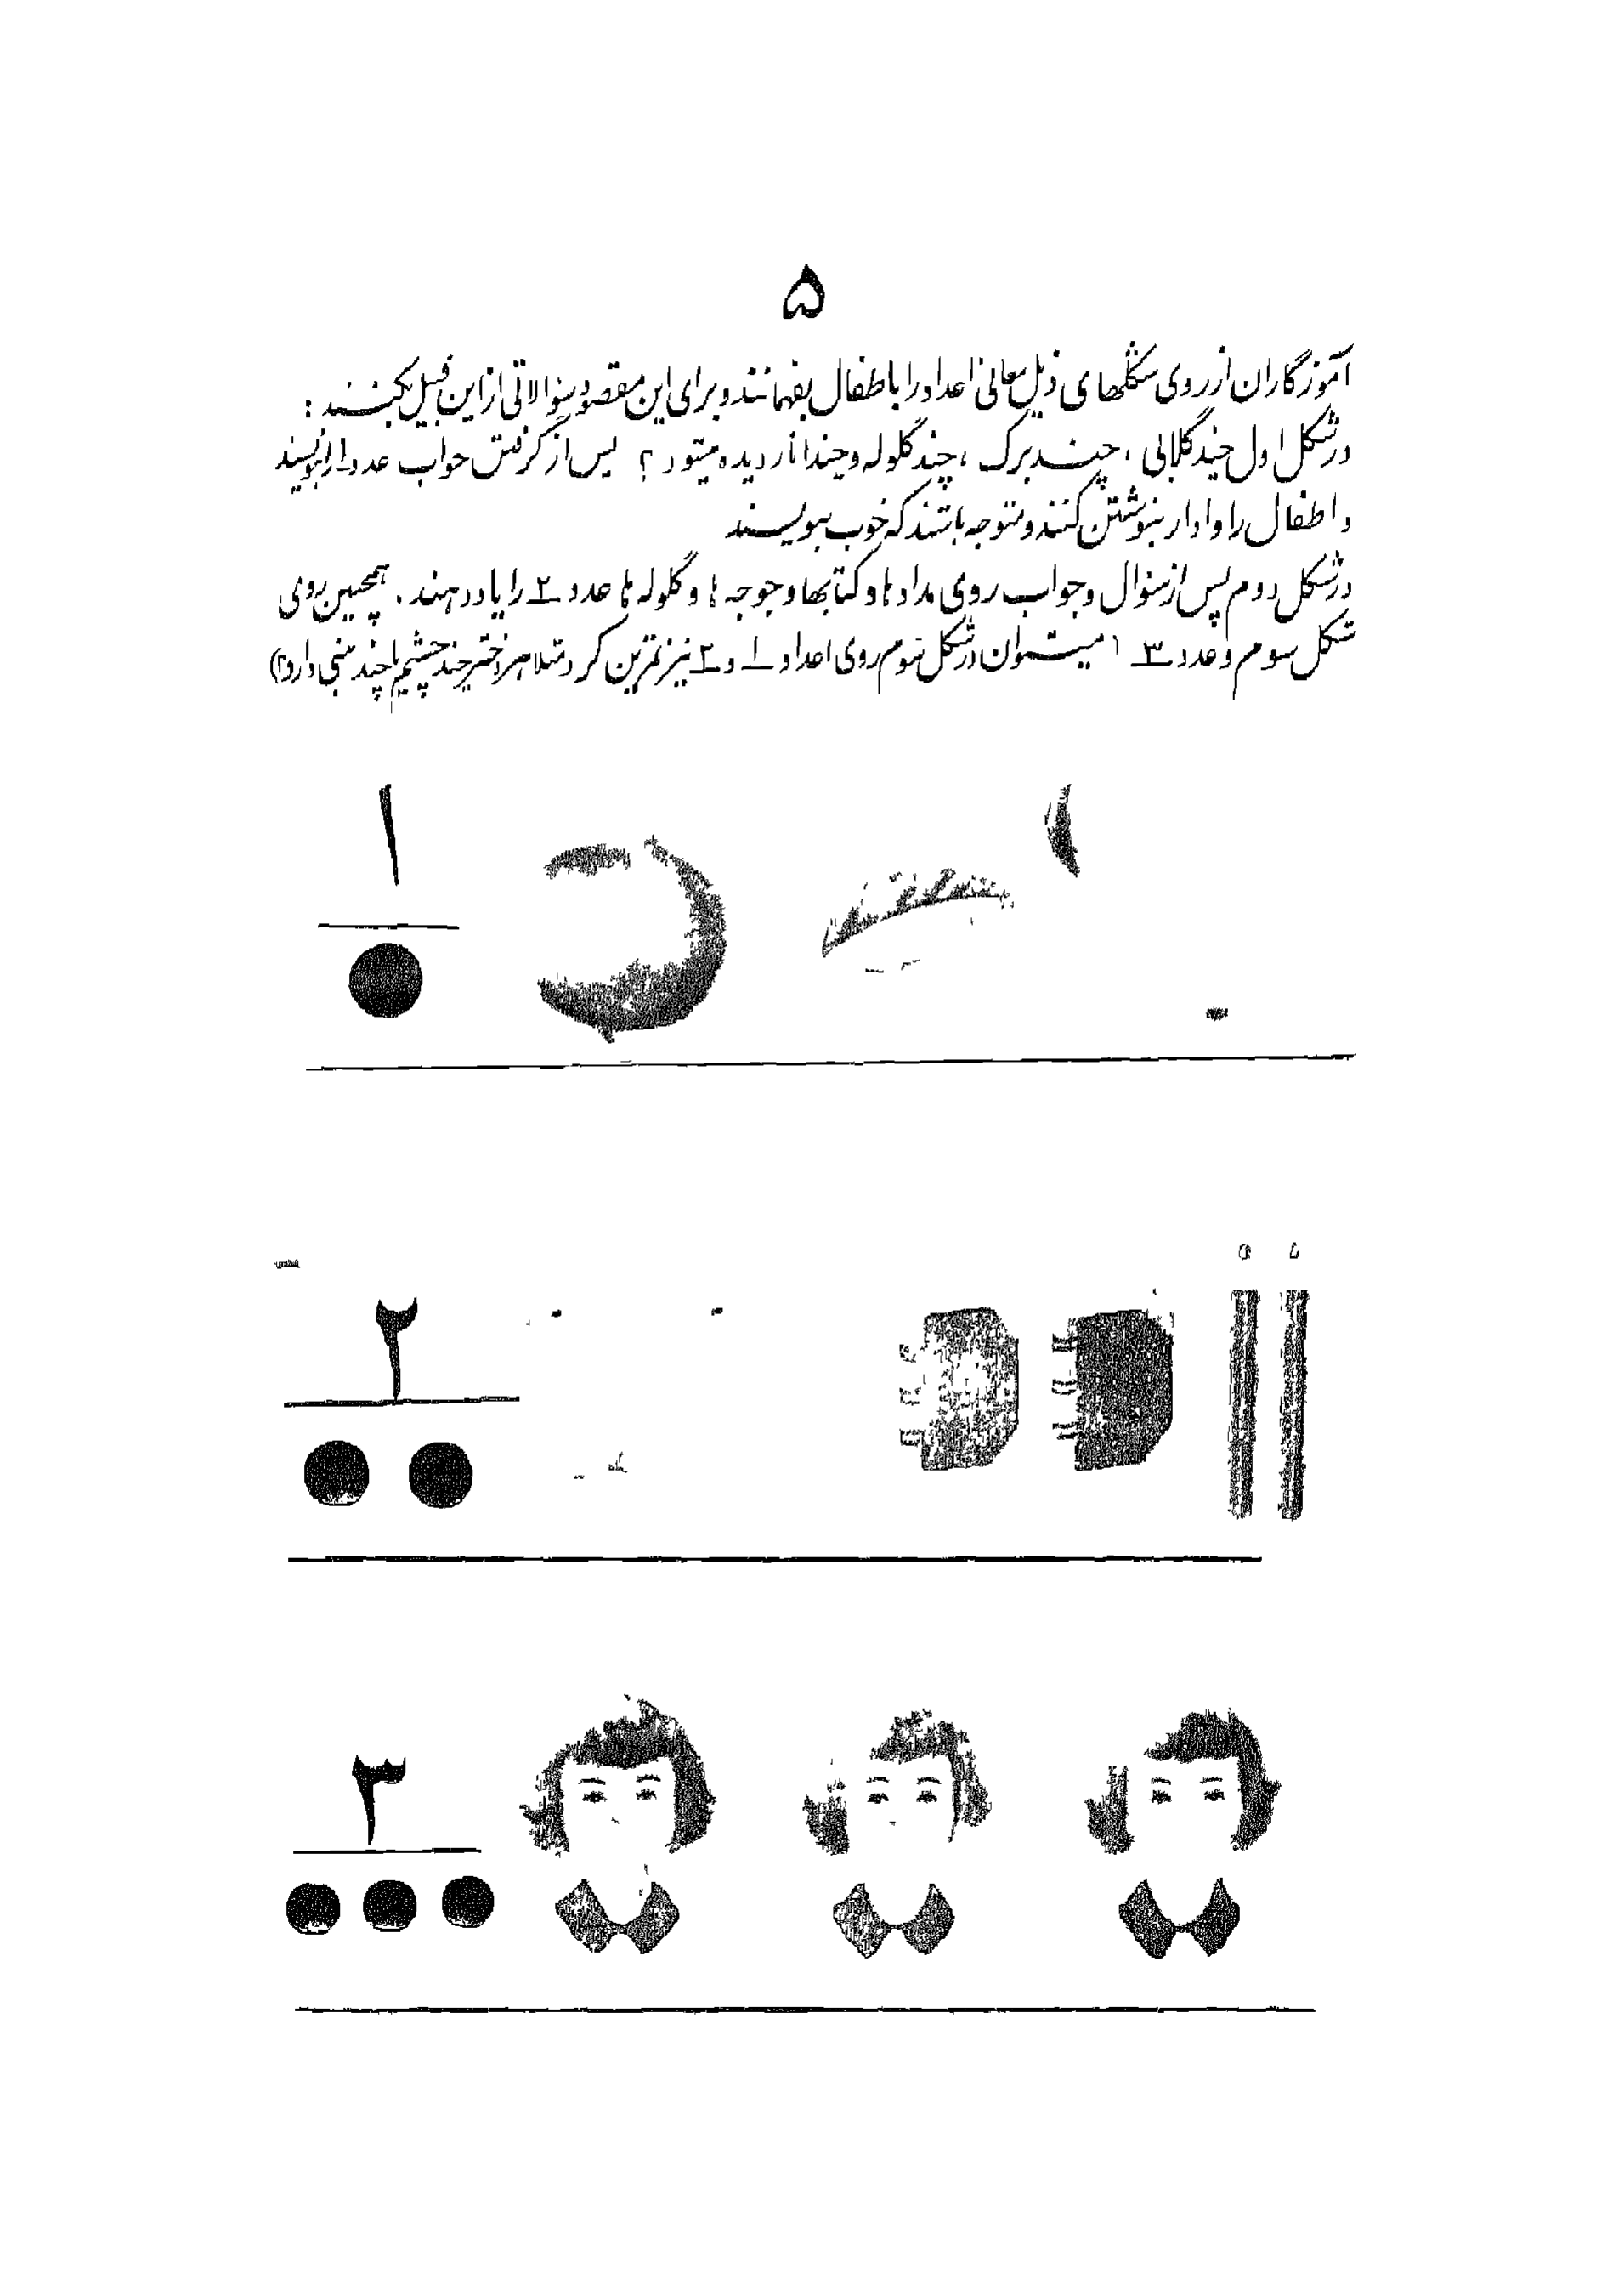 ۵
آموزگاران از روی شکلهای ذیل معانی اعداد را باطفال بفهمانند و برای این مقصود سؤالاتی از این قبیل بکنند :
در شکل اول چند گلابی ، چند برگ ، چند گلوله و چند انار دیده میشود ؟ پس از گرفتن جواب عدد ۱ را بنویسند
و اطفال را وادار بنوشتن کنند و متوجه باشند که خوب بنویسند
در شکل دوم پس از سئوال و جواب روی مداد ها و کتابها و جوجه ها و گلوله ها عدد ۲ را یاد دهند . همچنین روی
شکل سوم و عدد ۳ ( میتوان در شکل سوم روی اعداد ۱ و ۲ نیز تمرین کرد مثلا هر دختر چند چشم یا چند بینی دارد؟)
۱
۲
۳